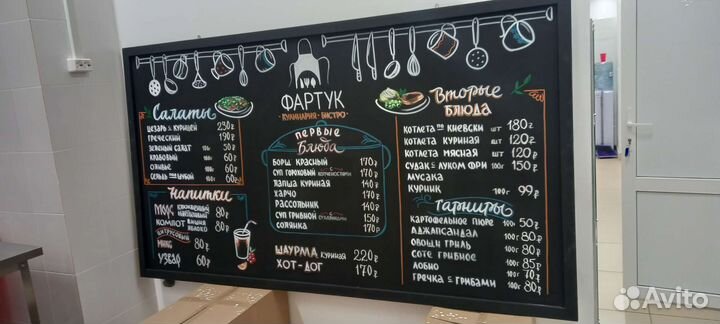 ФАРТУК
КУЛИНАРИЯ · БИСТРО
Салаты
ЦЕЗАРЬ С КУРИЦЕЙ 230₽
ГРЕЧЕСКИЙ 190₽
ЗЕЛЕНЫЙ САЛАТ 100г 50₽
КРАБОВЫЙ 60₽
ОЛИВЬЕ 60₽
СЕЛЬДЬ ПОД ШУБОЙ 100г 60₽
Напитки
МОРС КЛЮКВЕННЫЙ 80₽
КОМПОТ ВИШНЯ ЯБЛОКО 80₽
ЦИТРУСОВЫЙ МИКС 80₽
УЗВАР 60₽
ПЕРВЫЕ
Блюда
БОРЩ КРАСНЫЙ 170₽
СУП ГОРОХОВЫЙ С КОПЧЕНОСТЯМИ 170₽
ЛАПША КУРИНАЯ 140₽
ХАРЧО 170₽
РАССОЛЬНИК 140₽
СУП ГРИБНОЙ С СУХАРИКАМИ 150₽
СОЛЯНКА 170₽
ШАУРМА КУРИНАЯ 220₽
ХОТ-ДОГ 170₽
Вторые
БЛЮДА
КОТЛЕТА ПО КИЕВСКИ ШТ 180₽
КОТЛЕТА КУРИНАЯ ШТ 120₽
КОТЛЕТА МЯСНАЯ ШТ 120₽
СУДАК С ЛУКОМ ФРИ 100г 150₽
МУСАКА
КУРНИК 100г 99₽
Гарниры
КАРТОФЕЛЬНОЕ ПЮРЕ 100г 50₽
АДЖАПСАНДАЛ 100г 80₽
ОВОЩИ ГРИЛЬ 100г 80₽
СОТЕ ГРИБНОЕ 100г 85₽
ЛОБИО 100г 70₽
ГРЕЧКА С ГРИБАМИ 100г 80₽
Avito